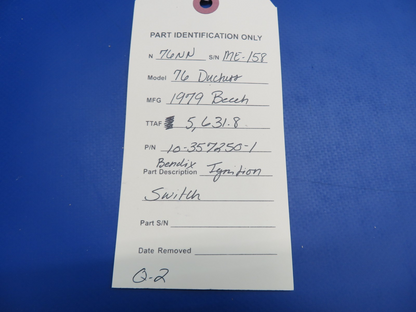 PART IDENTIFICATION ONLY
N 76NN S/N ME-158
Model 76 Duchess
MFG 1979 Beech
TTAF 5,631.8
P/N 10-357250-1
Bendix
Part Description Ignition
Switch
Part S/N
Date Removed
Q-2